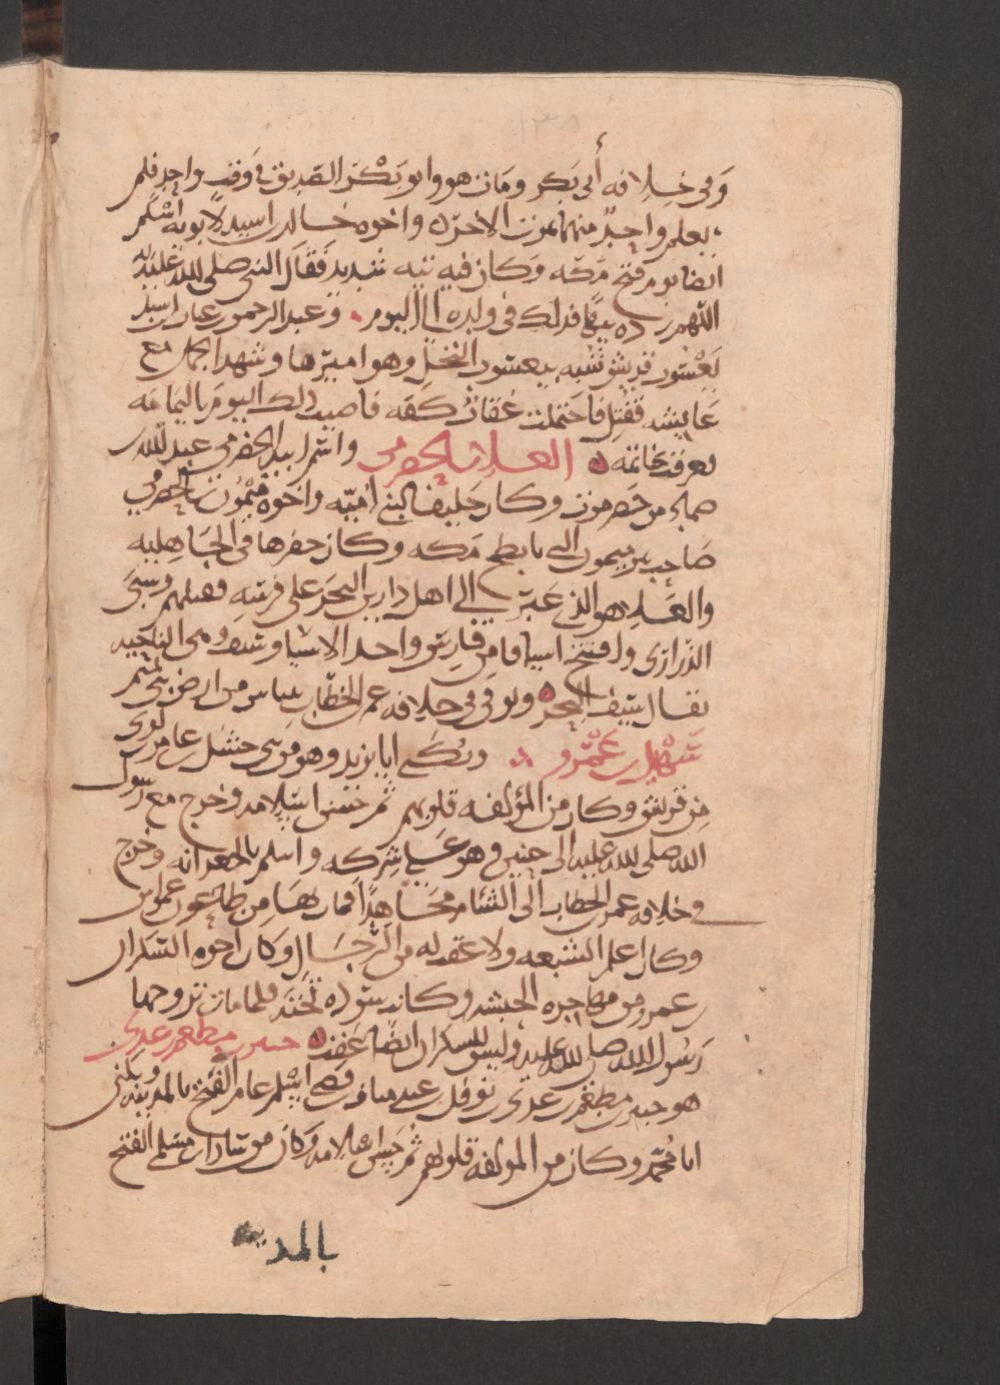 وفى خلافه أبى بكر ومات هو وابو بكر الصديق فى وقت واحد فلم
يعلم واحد منهما بموت الاخر واخوه خالد بن اسيد لابويه اسلم
ايضا يوم فتح مكه وكان فيه تيه شديد فقال النبى صلى الله عليه
اللهم زده تيها فذلك فى ولده الى اليوم وعبد الرحمن بن عتاب بن اسيد
يعسوب قريش شبه بيعسوب النحل وهو اميرها وشهد الجمل مع
عايشه فقتل فاحتملت عقاب كفه فاصيب ذلك اليوم باليمامه
فعرفت بخاتمه العلا بن الحضرمى واسم ابيه الحضرمى عبد الله بن
ضماد من حضرموت وكان حليفا لبنى أميه واخوه ميمون بن الحضرمى
صاحب بير ميمون التى بابطح مكه وكان حفرها فى الجاهليه
والعلا هو الذى عبر الى اهل دارين البحر على فرسه فقتلهم وسبى
الذرارى وافتتح اسيافا من فارس واحد الاسياف سيف وهى الناحيه
يقال سيف البحر وتوفى فى خلافه عمر بن الخطاب بتياس من ارض بنى تميم
سهيل بن عمرو ويكنى ابا يزيد وهو من بنى حسل بن عامر بن لوى
من قريش وكان من المؤلفه قلوبهم ثم حسن اسلامه وخرج مع رسول
الله صلى الله عليه الى حنين وهو على شركه واسلم بالجعرانه وخرج
فى خلافه عمر بن الخطاب الى الشام مجاهدا فمات بها من طاعون عمواس
وكان اعلم الشفه ولا عقب له من الرجال وكان اخوه السكران
بن عمرو من مهاجره الحبشه وكانت سوده تحته فلما مات تزوجها
رسول الله صلى الله عليه وليس للسكران ايضا عقب جبير بن مطعم بن عدى
هو جبير بن مطعم بن عدى بن نوفل بن عبد مناف بن قصى اسلم عام الفتح بالمدينه ويكنى
ابا محمد وكان من المولفه قلوبهم ثم حسن اسلامه وكان من سادات مسلمى الفتح
بالمدينه